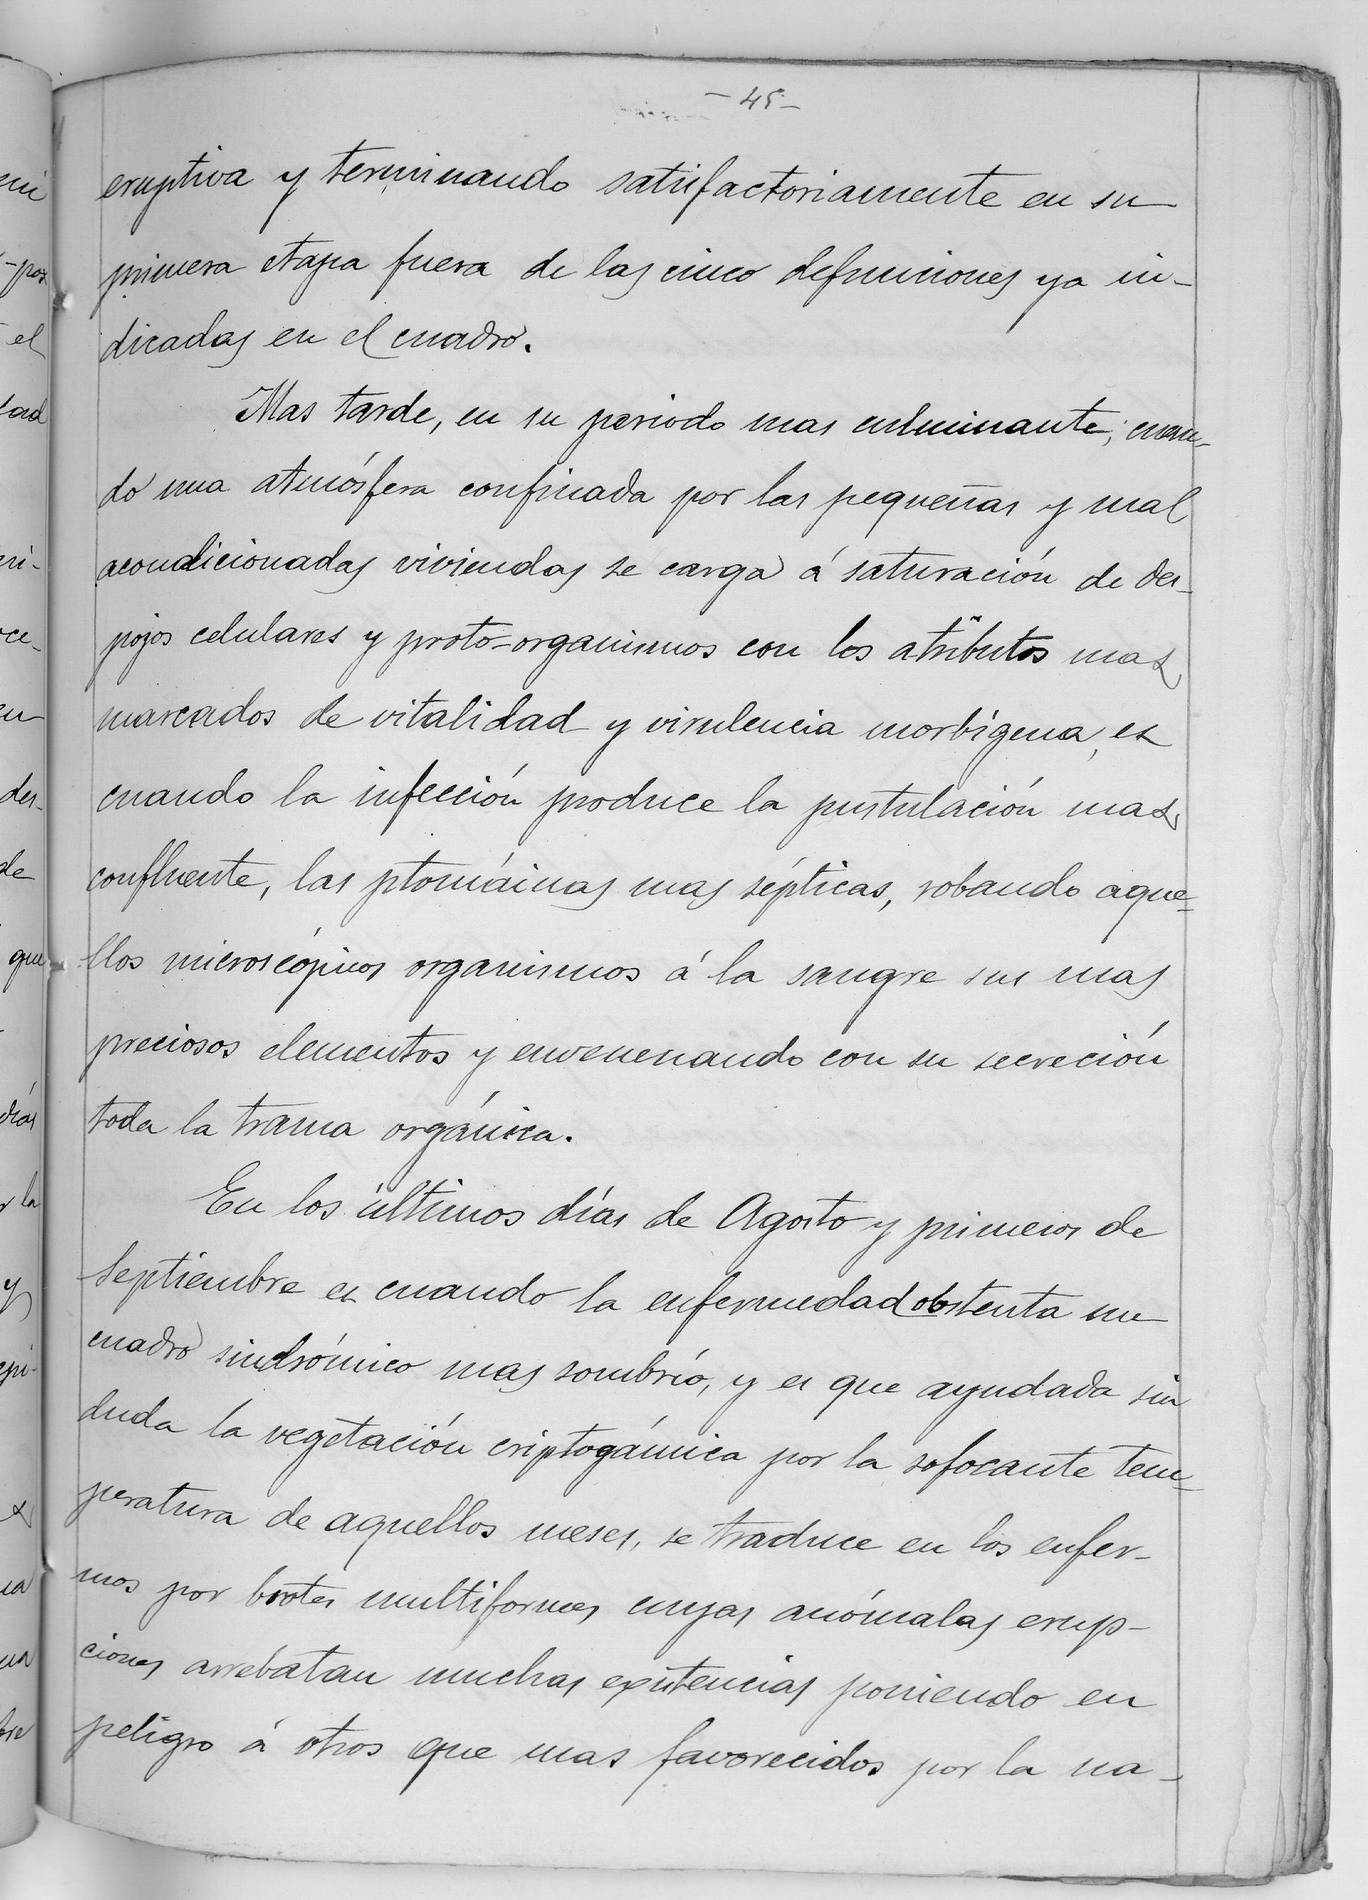 - 45 -
eruptiva y terminando satisfactoriamente en su
primera etapa fuera de las cinco defunciones ya in-
dicadas en el cuadro.
Mas tarde, en su periodo mas culminante, cuan-
do una atmósfera confinada por las pequeñas y mal
acondicionadas viviendas se carga á saturación de des-
pojos celulares y proto-organismos con los atributos mas
marcados de vitalidad y virulencia morbígena, es
cuando la infección produce la pustulación mas
confluente, las ptomáinas mas sépticas, robando aque-
llos microscópicos organismos á la sangre sus mas
preciosos elementos y envenenando con su secreción
toda la trama orgánica.
En los últimos días de Agosto y primeros de
Septiembre es cuando la enfermedad obstenta su
cuadro sindrómico mas sombrío, y es que ayudada sin
duda la vegetación criptogámica por la sofocante tem-
peratura de aquellos meses, se traduce en los enfer-
mos por brotes multiformes cuyas anómalas erup-
ciones arrebatan muchas existencias poniendo en
peligro á otros que mas favorecidos por la na-